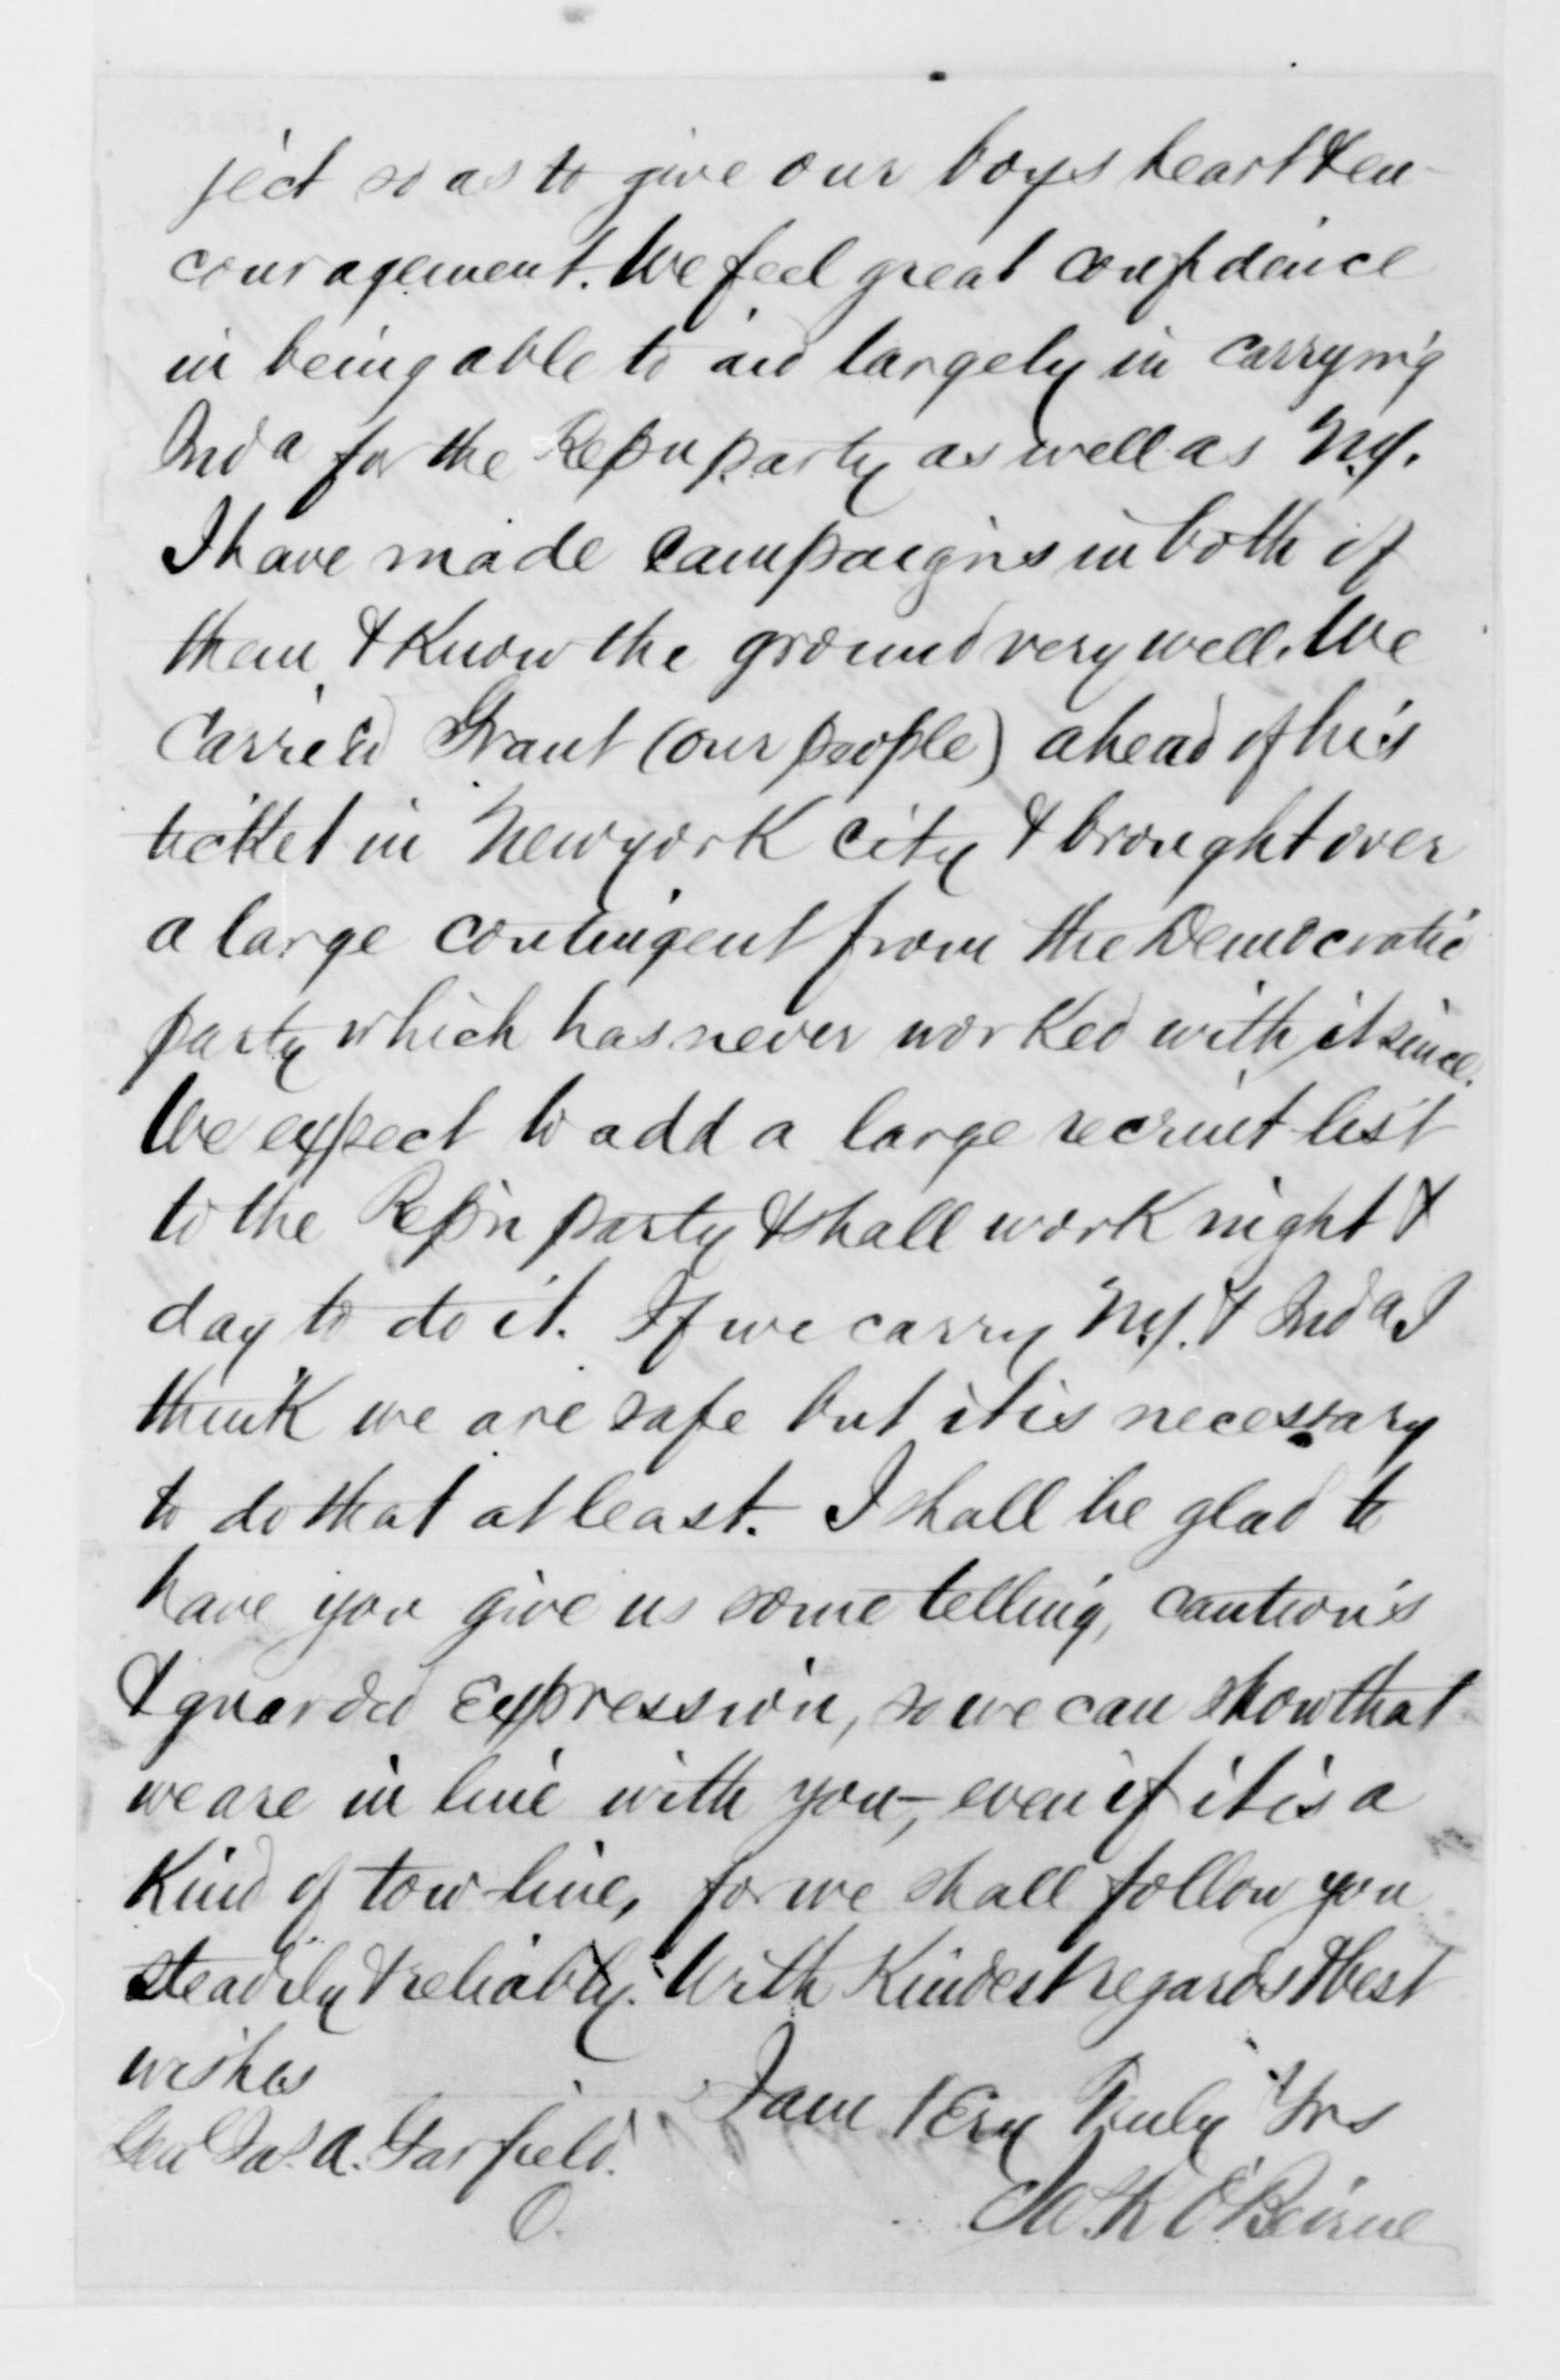 ject so as to give our boys heart & en-
couragement. We feel great confidence
in being able to aid largely in carrying
Inda for the Repn party as well as N.Y.
I have made campaigns in both of
them, & Know the ground very well. We
carried Grant (our people) ahead of his
ticket in New york City & brought over
a large contingent from the Democratic
party which has never worked with it since.
We expect to add a large recruit list
to the Repn party & shall work night &
day to do it. If we carry N.Y. & Inda I
think we are safe but it is necessary
to do that at least. I shall be glad to
have you give us some telling, cautious
& guarded expression, so we can show that
we are in line with you—, even if it is a
Kind of tow-line, for we shall follow you
steadily & reliably. With Kindest regards & best
wishes
I am Very Truly Yrs
Genl Jas. A. Garfield.
O.
O'Beirne